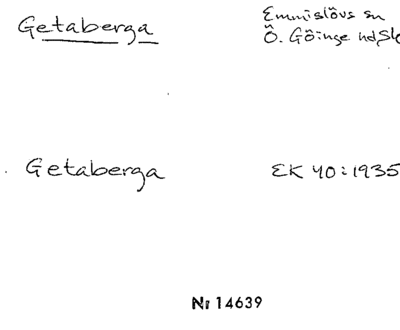 Getaberga
Emmislövs sn
Ö. Göinge hd, Sk
Getaberga
EK 40:1935
Nr 14639